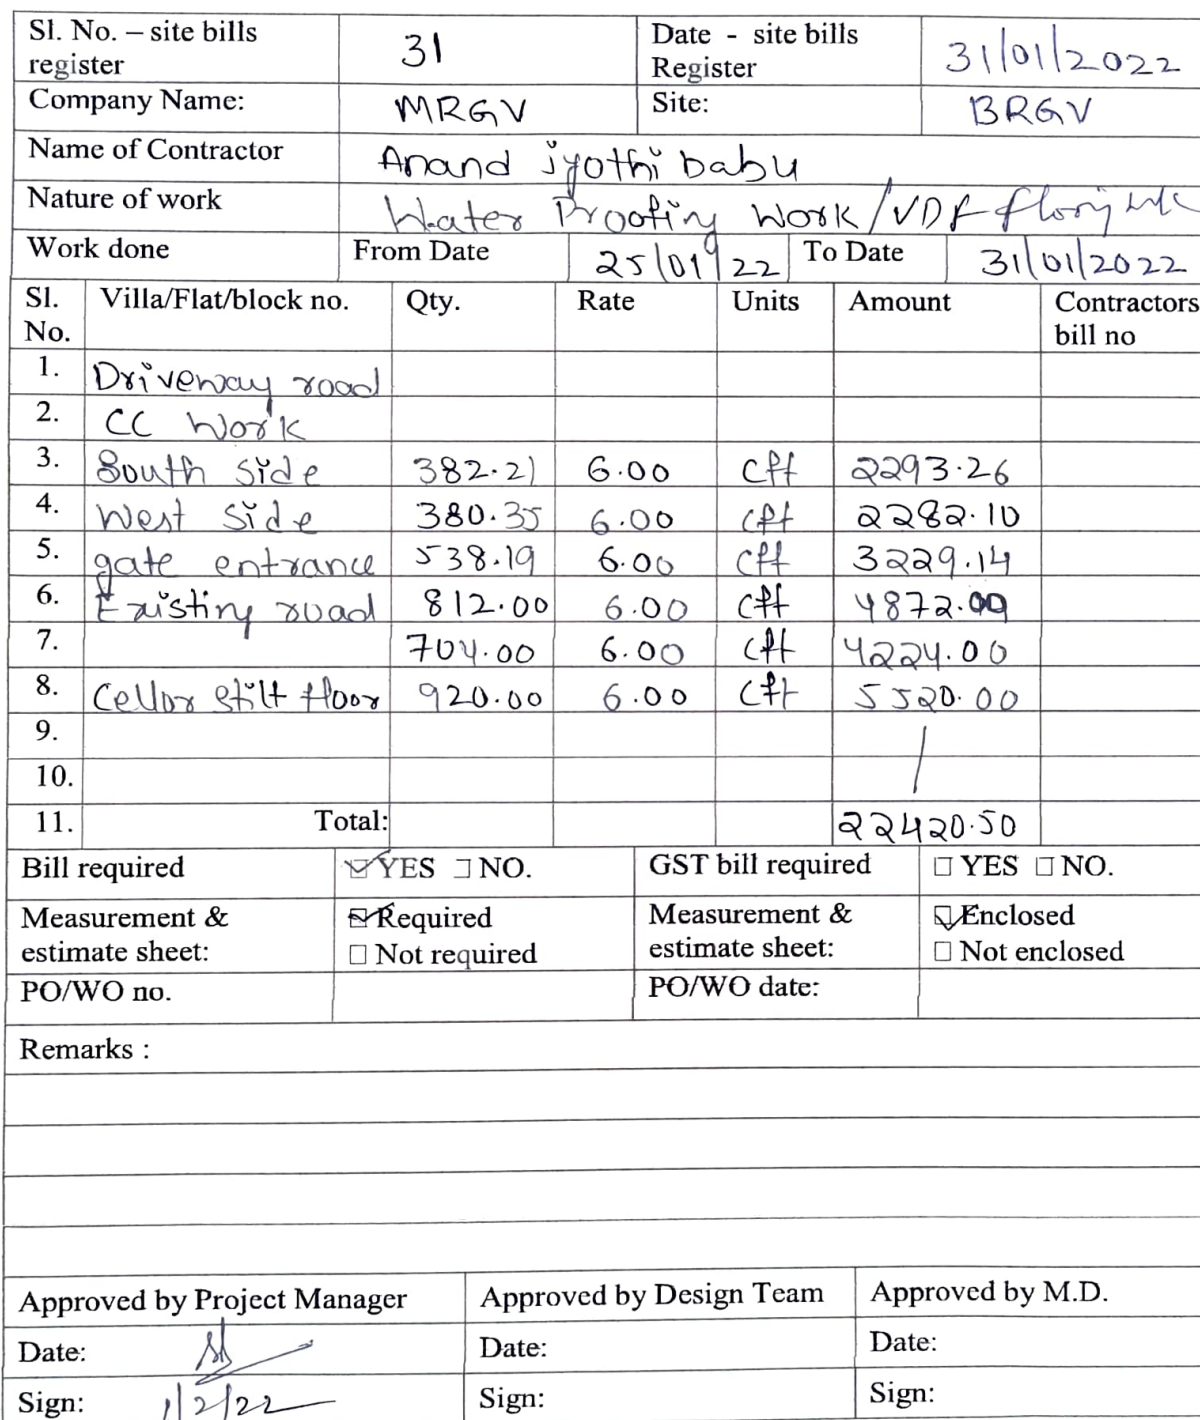 Sl. No. – site bills register 31 Date - site bills Register 31/01/2022
Company Name: MRGV Site: BRGV
Name of Contractor Anand jyothi babu
Nature of work Water Proofing Work/VDF
Work done From Date 25/01/22 To Date 31/01/2022
Sl. No. Villa/Flat/block no. Qty. Rate Units Amount Contractors bill no
1. Driveway road
2. CC Work
3. South Side 382.21 6.00 Cft 2293.26
4. West Side 380.35 6.00 Cft 2282.10
5. gate entrance 538.19 6.00 Cft 3229.14
6. Existing road 812.00 6.00 Cft 4872.00
7. 704.00 6.00 Cft 4224.00
8. Cellor stilt floor 920.00 6.00 Cft 5520.00
9.
10.
11. Total: 22420.50
Bill required YES NO. GST bill required YES NO.
Measurement & estimate sheet: Required Not required Measurement & estimate sheet: Enclosed Not enclosed
PO/WO no. PO/WO date:
Remarks :
Approved by Project Manager Approved by Design Team Approved by M.D.
Date: Date: Date:
Sign: 1/2/22 Sign: Sign: